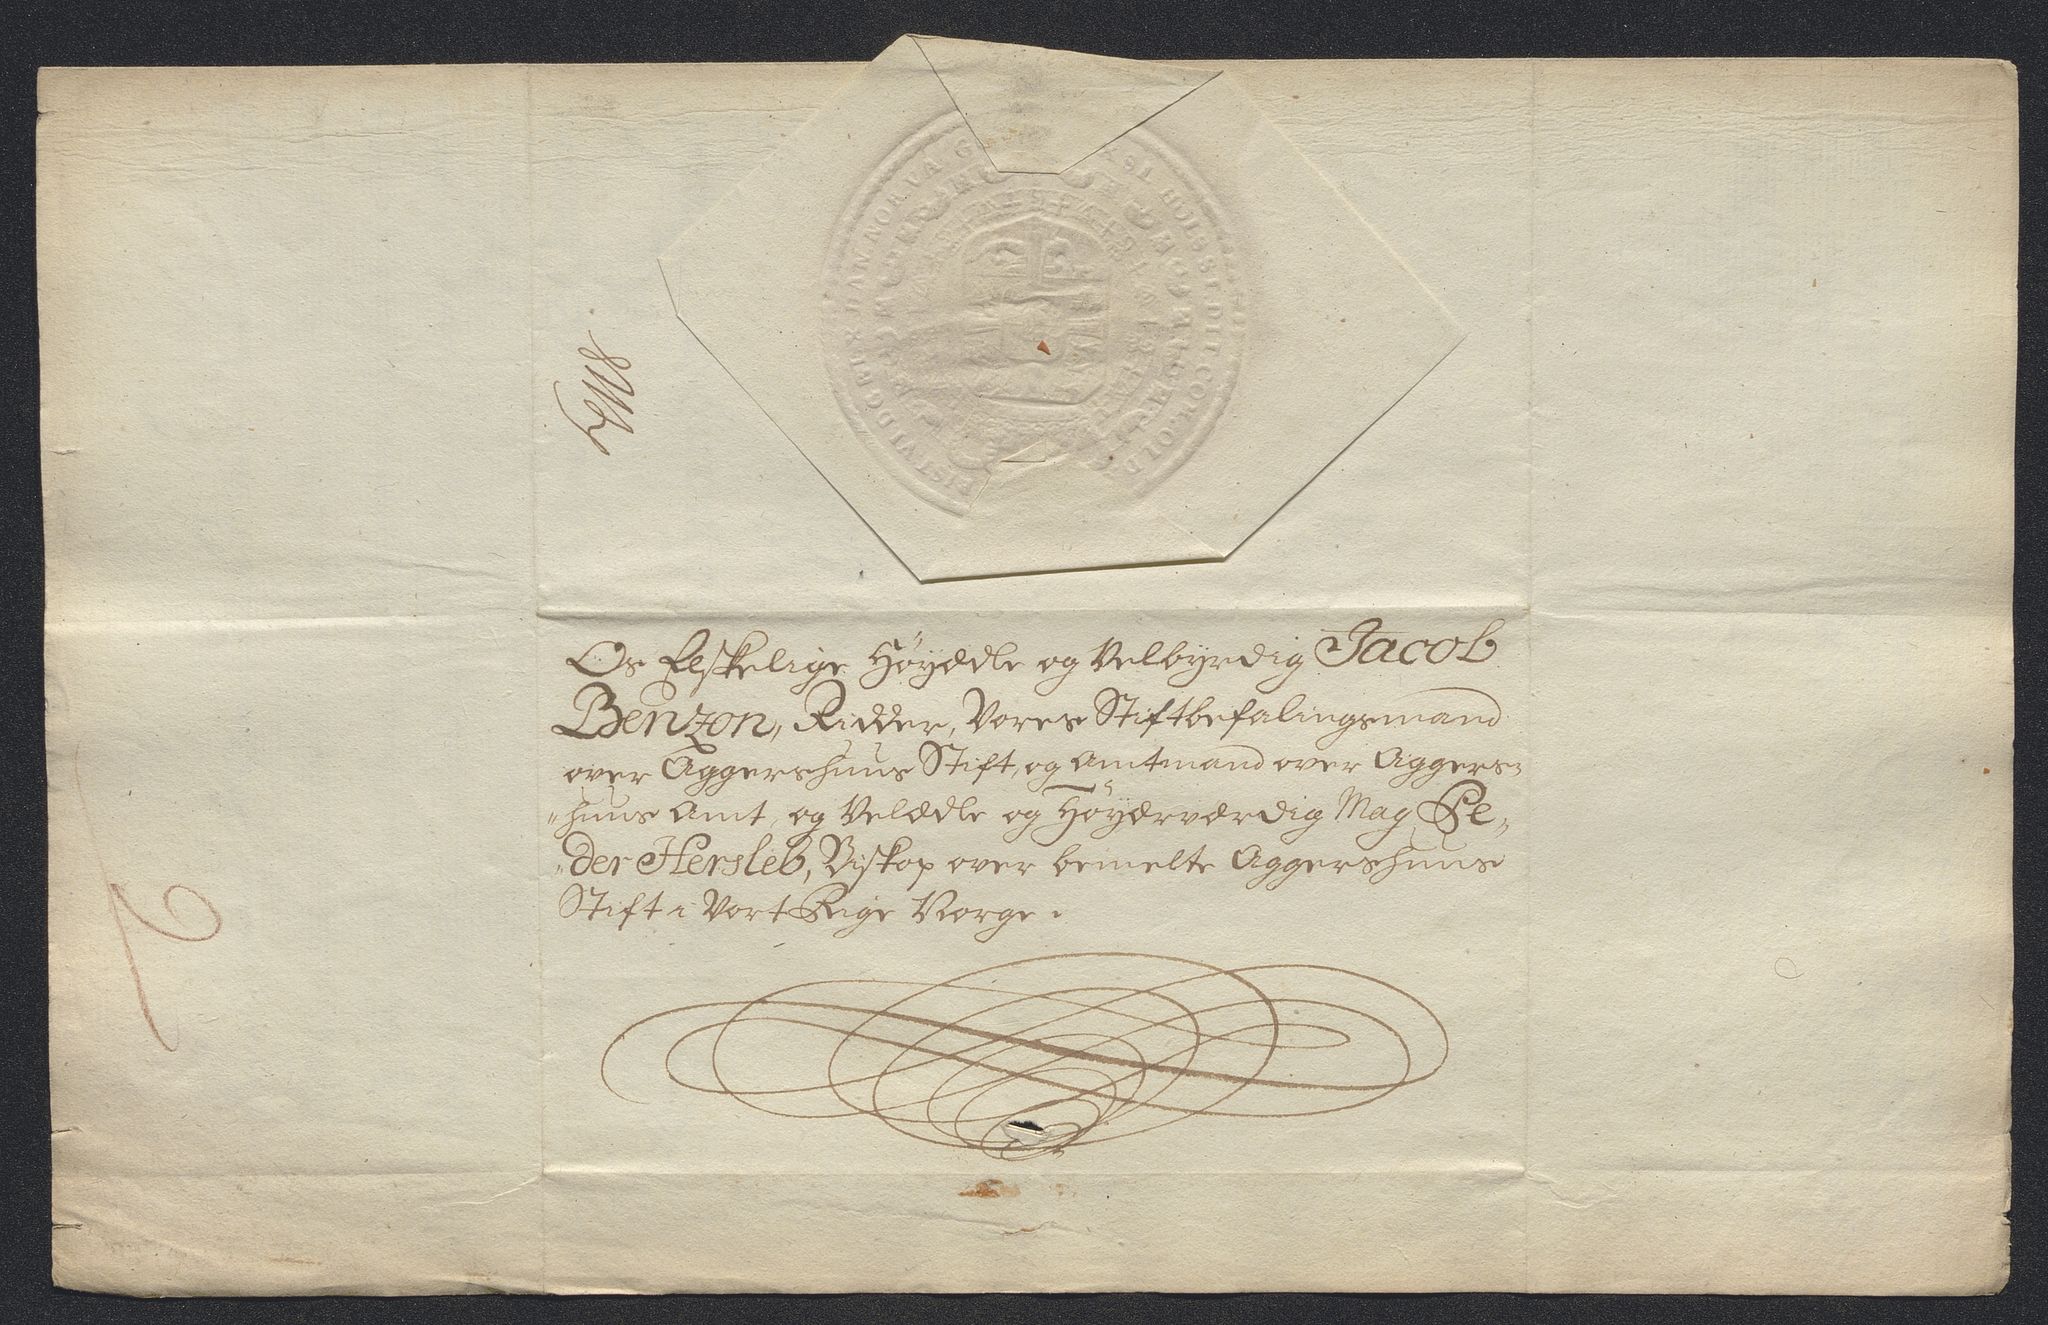 Os Elskelige Høyædle og Velbyrdig Jacob
Benzon, Ridder, Vores Stiftbefalingsmand
over Aggershuus Stift, og Amtmand over Aggers-
-huus Amt, og Velædle og Høyærværdig Mag Pe-
-der Hersleb, Biskop over bemelte Aggershuus
Stift i Vort Rige Norge.